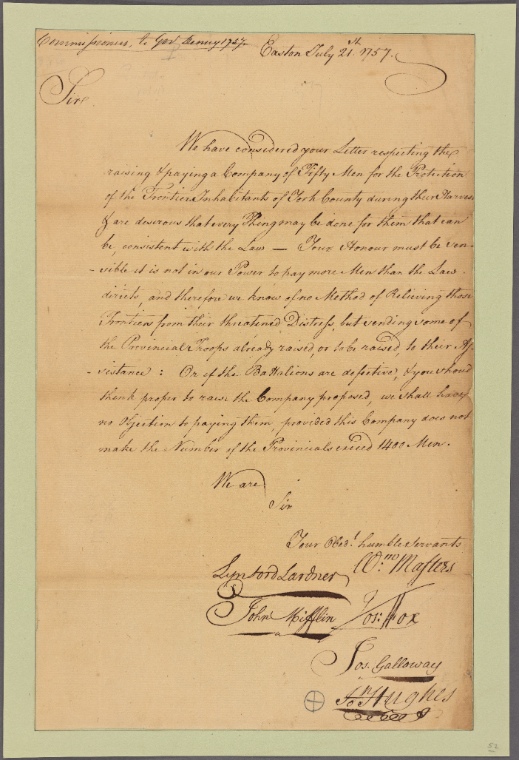 Commissioners to Govr Denny 1757.
Easton July 21st. 1757.
Sir
We have considered your Letter respecting the
raising & paying a Company of Fifty Men for the Protection
of the Frontier Inhabitants of York County during their Harvest
& are desirous that every Thing may be done for them that can
be, consistent with the Law — Your Honour must be sen-
-sible it is not in our Power to pay more Men than the Law
directs, and therefore we know of no Method of Relieving those
Frontiers from their threatened Distress, but sending some of
the Provincial Troops already raised, or to be raised, to their As-
-sistance: Or if the Battalions are defective, & you should
think proper to raise the Company proposed, we shall have
no objection to paying them, provided this Company does not
make the Number of the Provincials exceed 1400 Men.
We are
Sir
Your Obedt. humble Servants
Lynford Lardner Wm. Masters
John Mifflin Jos: Fox
Jos. Galloway
Jn Hughes
52